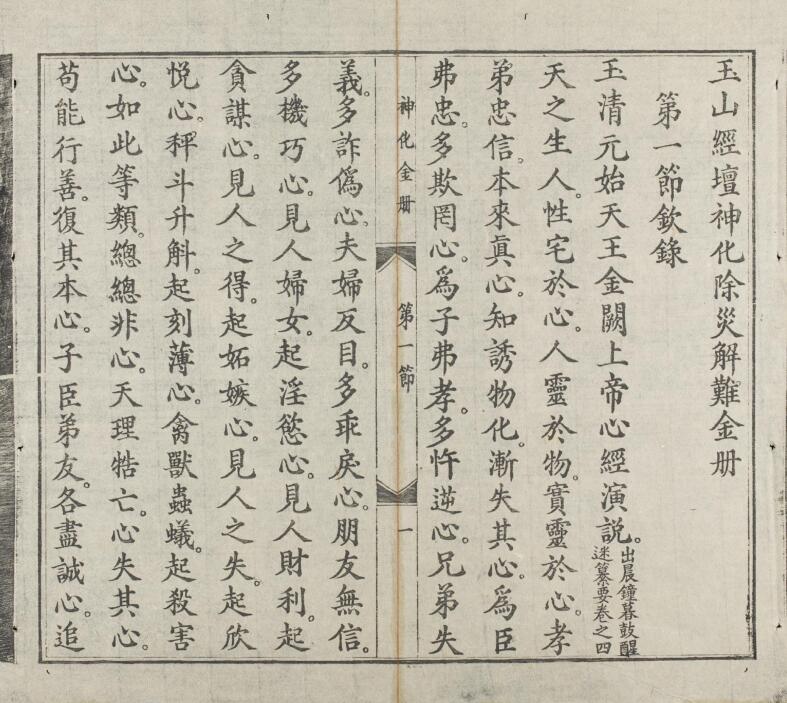 玉山經壇神化除災解難金册
第一節欽錄
玉清元始天王金闕上帝心經演說。出晨鐘暮鼓醒迷纂要卷之四
天之生人。性宅於心。人靈於物。實靈於心。孝
弟忠信。本來眞心。知誘物化。漸失其心。爲臣
弗忠。多欺罔心。爲子弗孝。多忤逆心。兄弟失
神化金册 第一節 一
義。多詐僞心。夫婦反目。多乖戾心。朋友無信。
多機巧心。見人婦女。起淫慾心。見人財利。起
貪謀心。見人之得。起妬嫉心。見人之失。起欣
悦心。秤斗升斛。起刻薄心。禽獸蟲蟻。起殺害
心。如此等類。總總非心。天理牿亡。心失其心。
苟能行善。復其本心。子臣弟友。各盡誠心。追